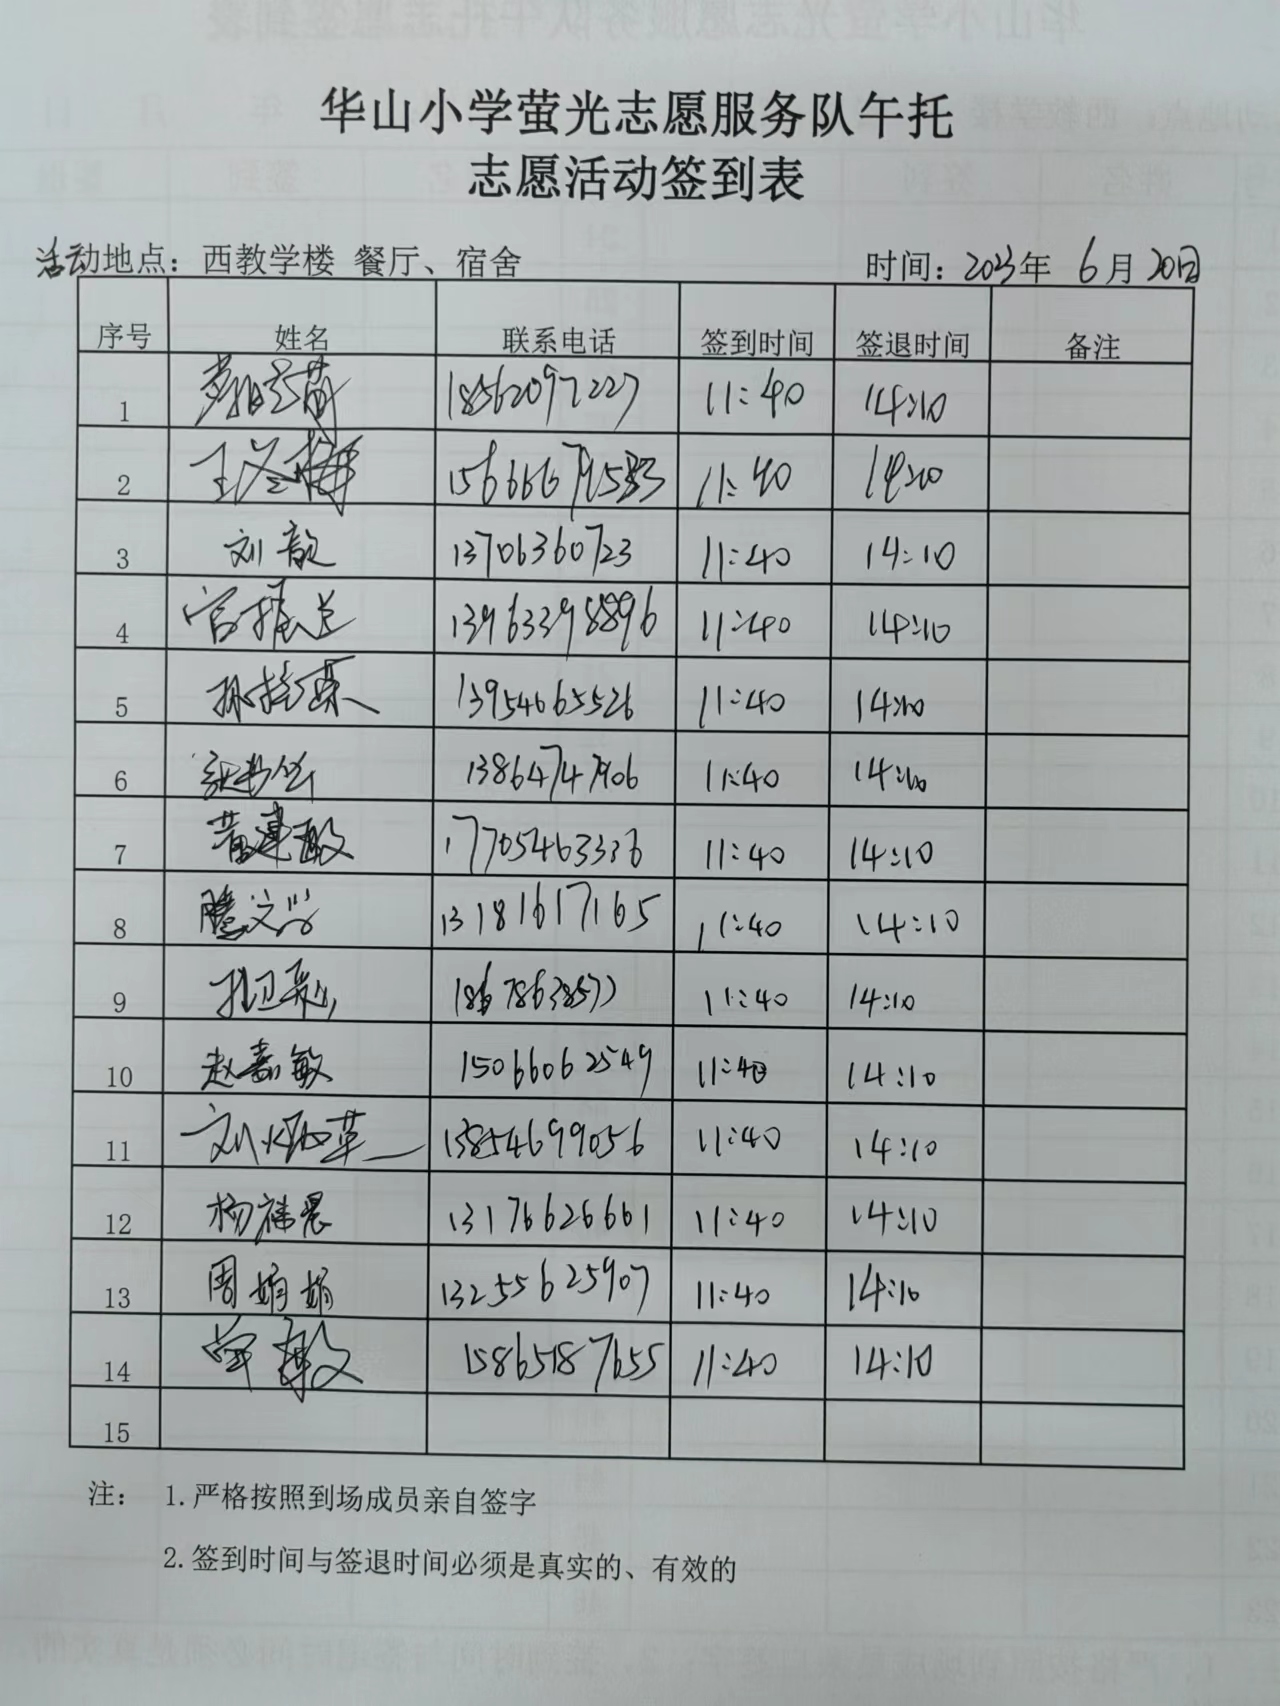 华山小学萤光志愿服务队午托
志愿活动签到表
活动地点：西教学楼 餐厅、宿舍 时间：2023年 6月20日
序号 姓名 联系电话 签到时间 签退时间 备注
1 18562097227 11:40 14:10
2 王冬梅 11:40 14:10
3 刘歆 13706360723 11:40 14:10
4 13963398896 11:40 14:10
5 13954665526 11:40 14:10
6 13864747906 11:40 14:10
7 黄建敏 17705463336 11:40 14:10
8 滕文兴 13181617165 11:40 14:10
9 18678638577 11:40 14:10
10 赵嘉敏 15066062549 11:40 14:10
11 13854699056 11:40 14:10
12 杨祎晨 13176626661 11:40 14:10
13 周娟娟 13255625907 11:40 14:10
14 15865187655 11:40 14:10
15
注： 1.严格按照到场成员亲自签字
2.签到时间与签退时间必须是真实的、有效的